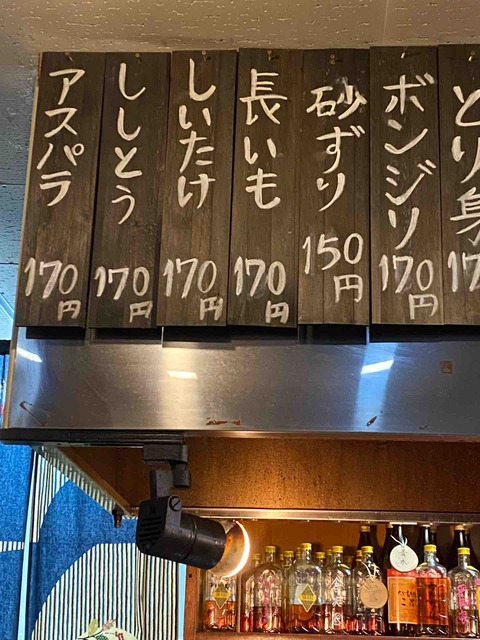 とり身
17
ボンジリ
170円
砂ずり
150円
長いも
170円
しいたけ
170円
ししとう
170円
アスパラ
170円